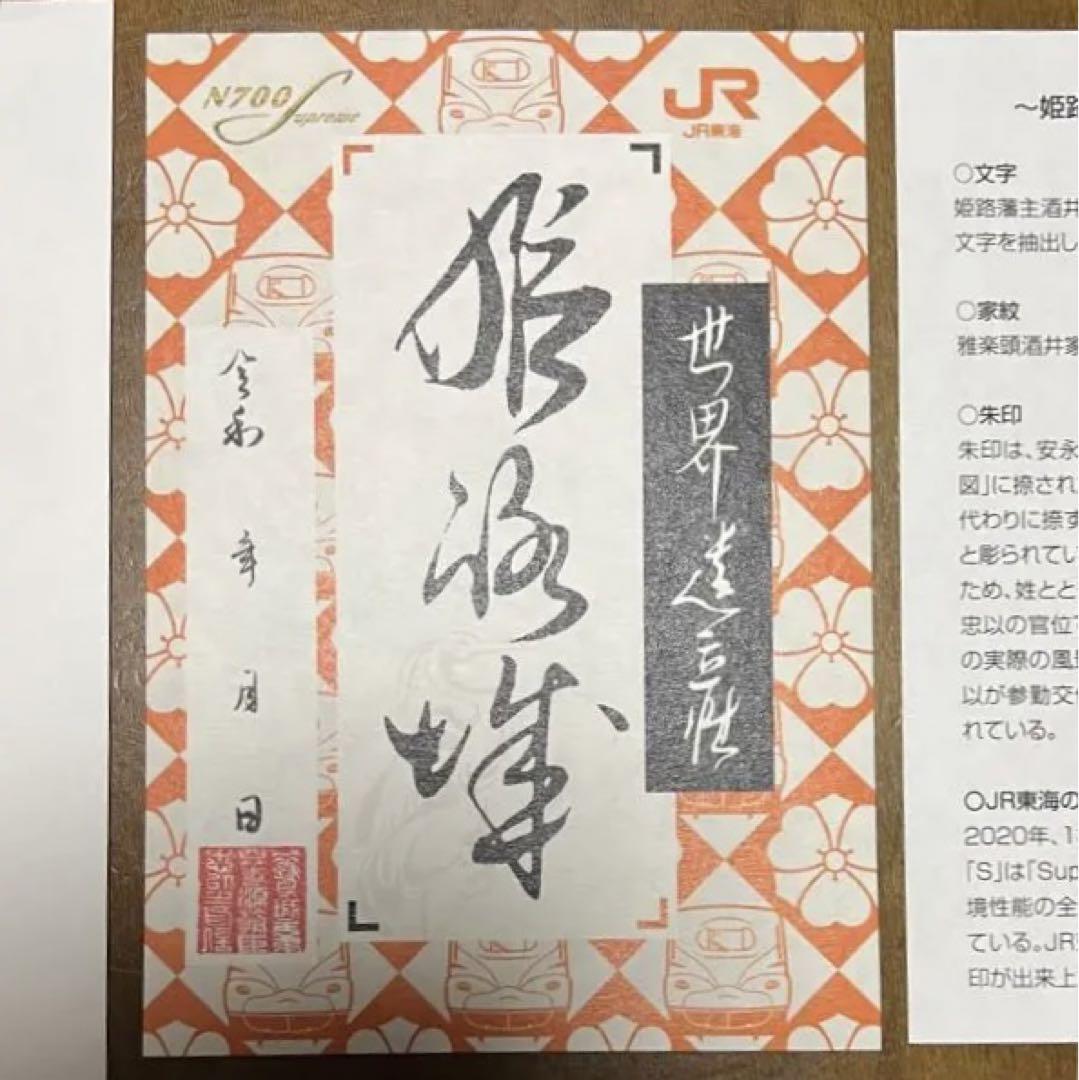 N700 Supreme
JR
JR東海
姫路城
世界遺産
令和 年 月 日
～姫路
○文字
姫路藩主酒井
文字を抽出し
○家紋
雅楽頭酒井家
○朱印
朱印は、安永
図」に捺され
代わりに捺す
と彫られてい
ため、姓とと
忠以の官位で
の実際の風景
以が参勤交代
れている。
○JR東海の
2020年、1
「S」は「Sup
境性能の全
ている。JR
印が出来上